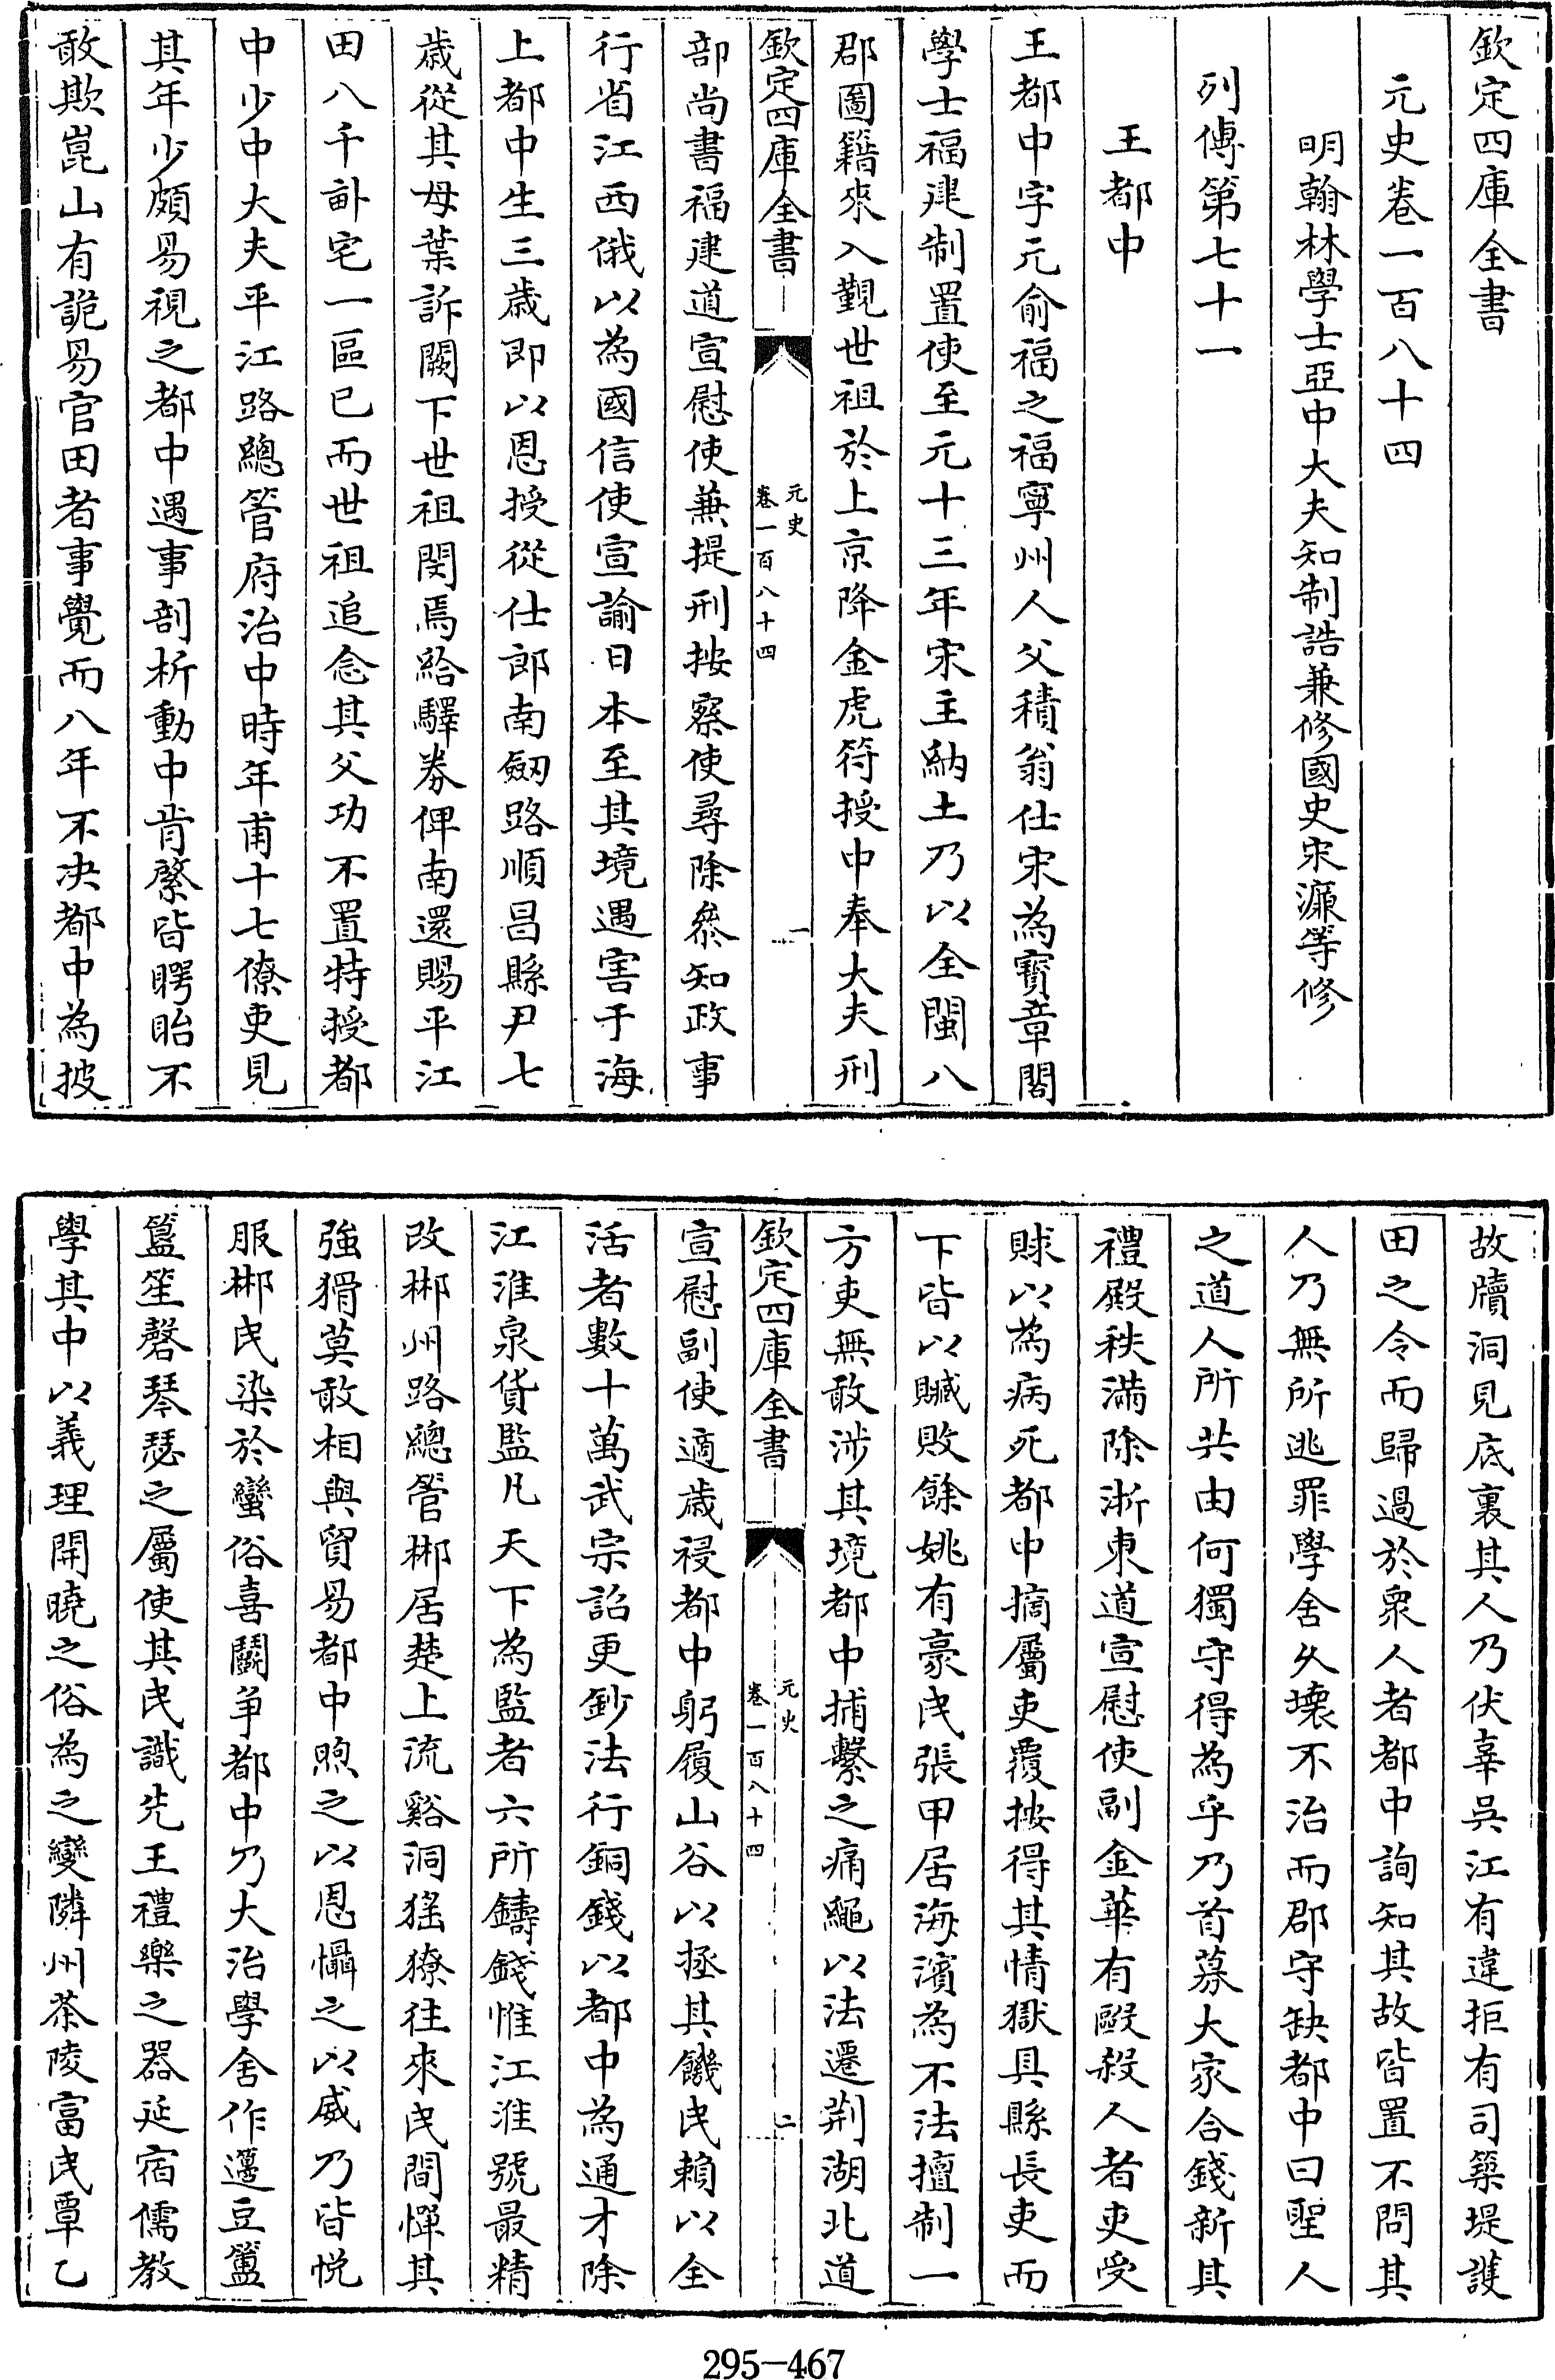 欽定四庫全書
元史卷一百八十四
明翰林學士亞中大夫知制誥兼修國史宋濂等修
列傳第七十一
王都中
王都中字元俞福之福寧州人父積翁仕宋為寳章閣
學士福建制置使至元十三年宋主納土乃以全閩八
郡圖籍來入覲世祖於上京降金虎符授中奉大夫刑
欽定四庫全書
元史
卷一百八十四
一
部尚書福建道宣慰使兼提刑按察使尋除叅知政事
行省江西俄以為國信使宣諭日本至其境遇害于海
上都中生三歳即以恩授從仕郎南劒路順昌縣尹七
歳從其母葉訴闕下世祖閔焉給驛券俾南還賜平江
田八千畝宅一區已而世祖追念其父功不置特授都
中少中大夫平江路總管府治中時年甫十七僚吏見
其年少頗易視之都中遇事剖析動中肯綮皆睅眙不
敢欺崑山有詭易官田者事覺而八年不決都中為披
故牘洞見底裏其人乃伏辜吳江有違拒有司築堤護
田之令而歸過於衆人者都中詢知其故皆置不問其
人乃無所逃罪學舍乆壊不治而郡守缺都中曰聖人
之道人所共由何獨守得為乎乃首募大家合錢新其
禮殿秩滿除浙東道宣慰使副金華有毆殺人者吏受
賕以為病死都中摘屬吏覆按得其情獄具縣長吏而
下皆以贓敗餘姚有豪民張甲居海濱為不法擅制一
方吏無敢涉其境都中捕繫之痛繩以法遷荆湖北道
欽定四庫全書
元史
卷一百八十四
二
宣慰副使適歳祲都中躬履山谷以拯其饑民賴以全
活者數十萬武宗詔更鈔法行銅錢以都中為通才除
江淮泉貨監凡天下為監者六所鑄錢惟江淮號最精
改郴州路總管郴居楚上流谿洞猺獠往來民間憚其
強猾莫敢相與貿易都中煦之以恩懾之以威乃皆悦
服郴民染於蠻俗喜鬭争都中乃大治學舍作籩豆簠
簋笙磬琴瑟之屬使其民識先王禮樂之器延宿儒教
學其中以義理開曉之俗為之變隣州茶陵富民覃乙
295-467